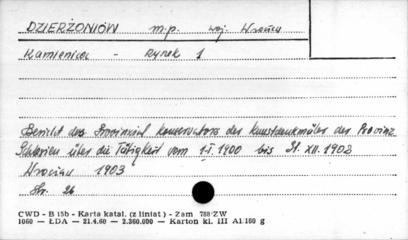 DZIERŻONIÓW m.p. woj. Wrocław
Kamienica - Rynek 1
Bericht des Provinzial Konservators der Kunstdenkmäler der Provinz
Schlesien über die Tätigkeit vom 1.I.1900 bis 31.XII.1902
Wrocław 1903
Str. 26
CWD - B 15b - Karta katal. (z liniat.) - Zam 788/ZW
1060 — ŁDA — 21.4.60 — 2.360.000 — Karton kl. III A1/160 g